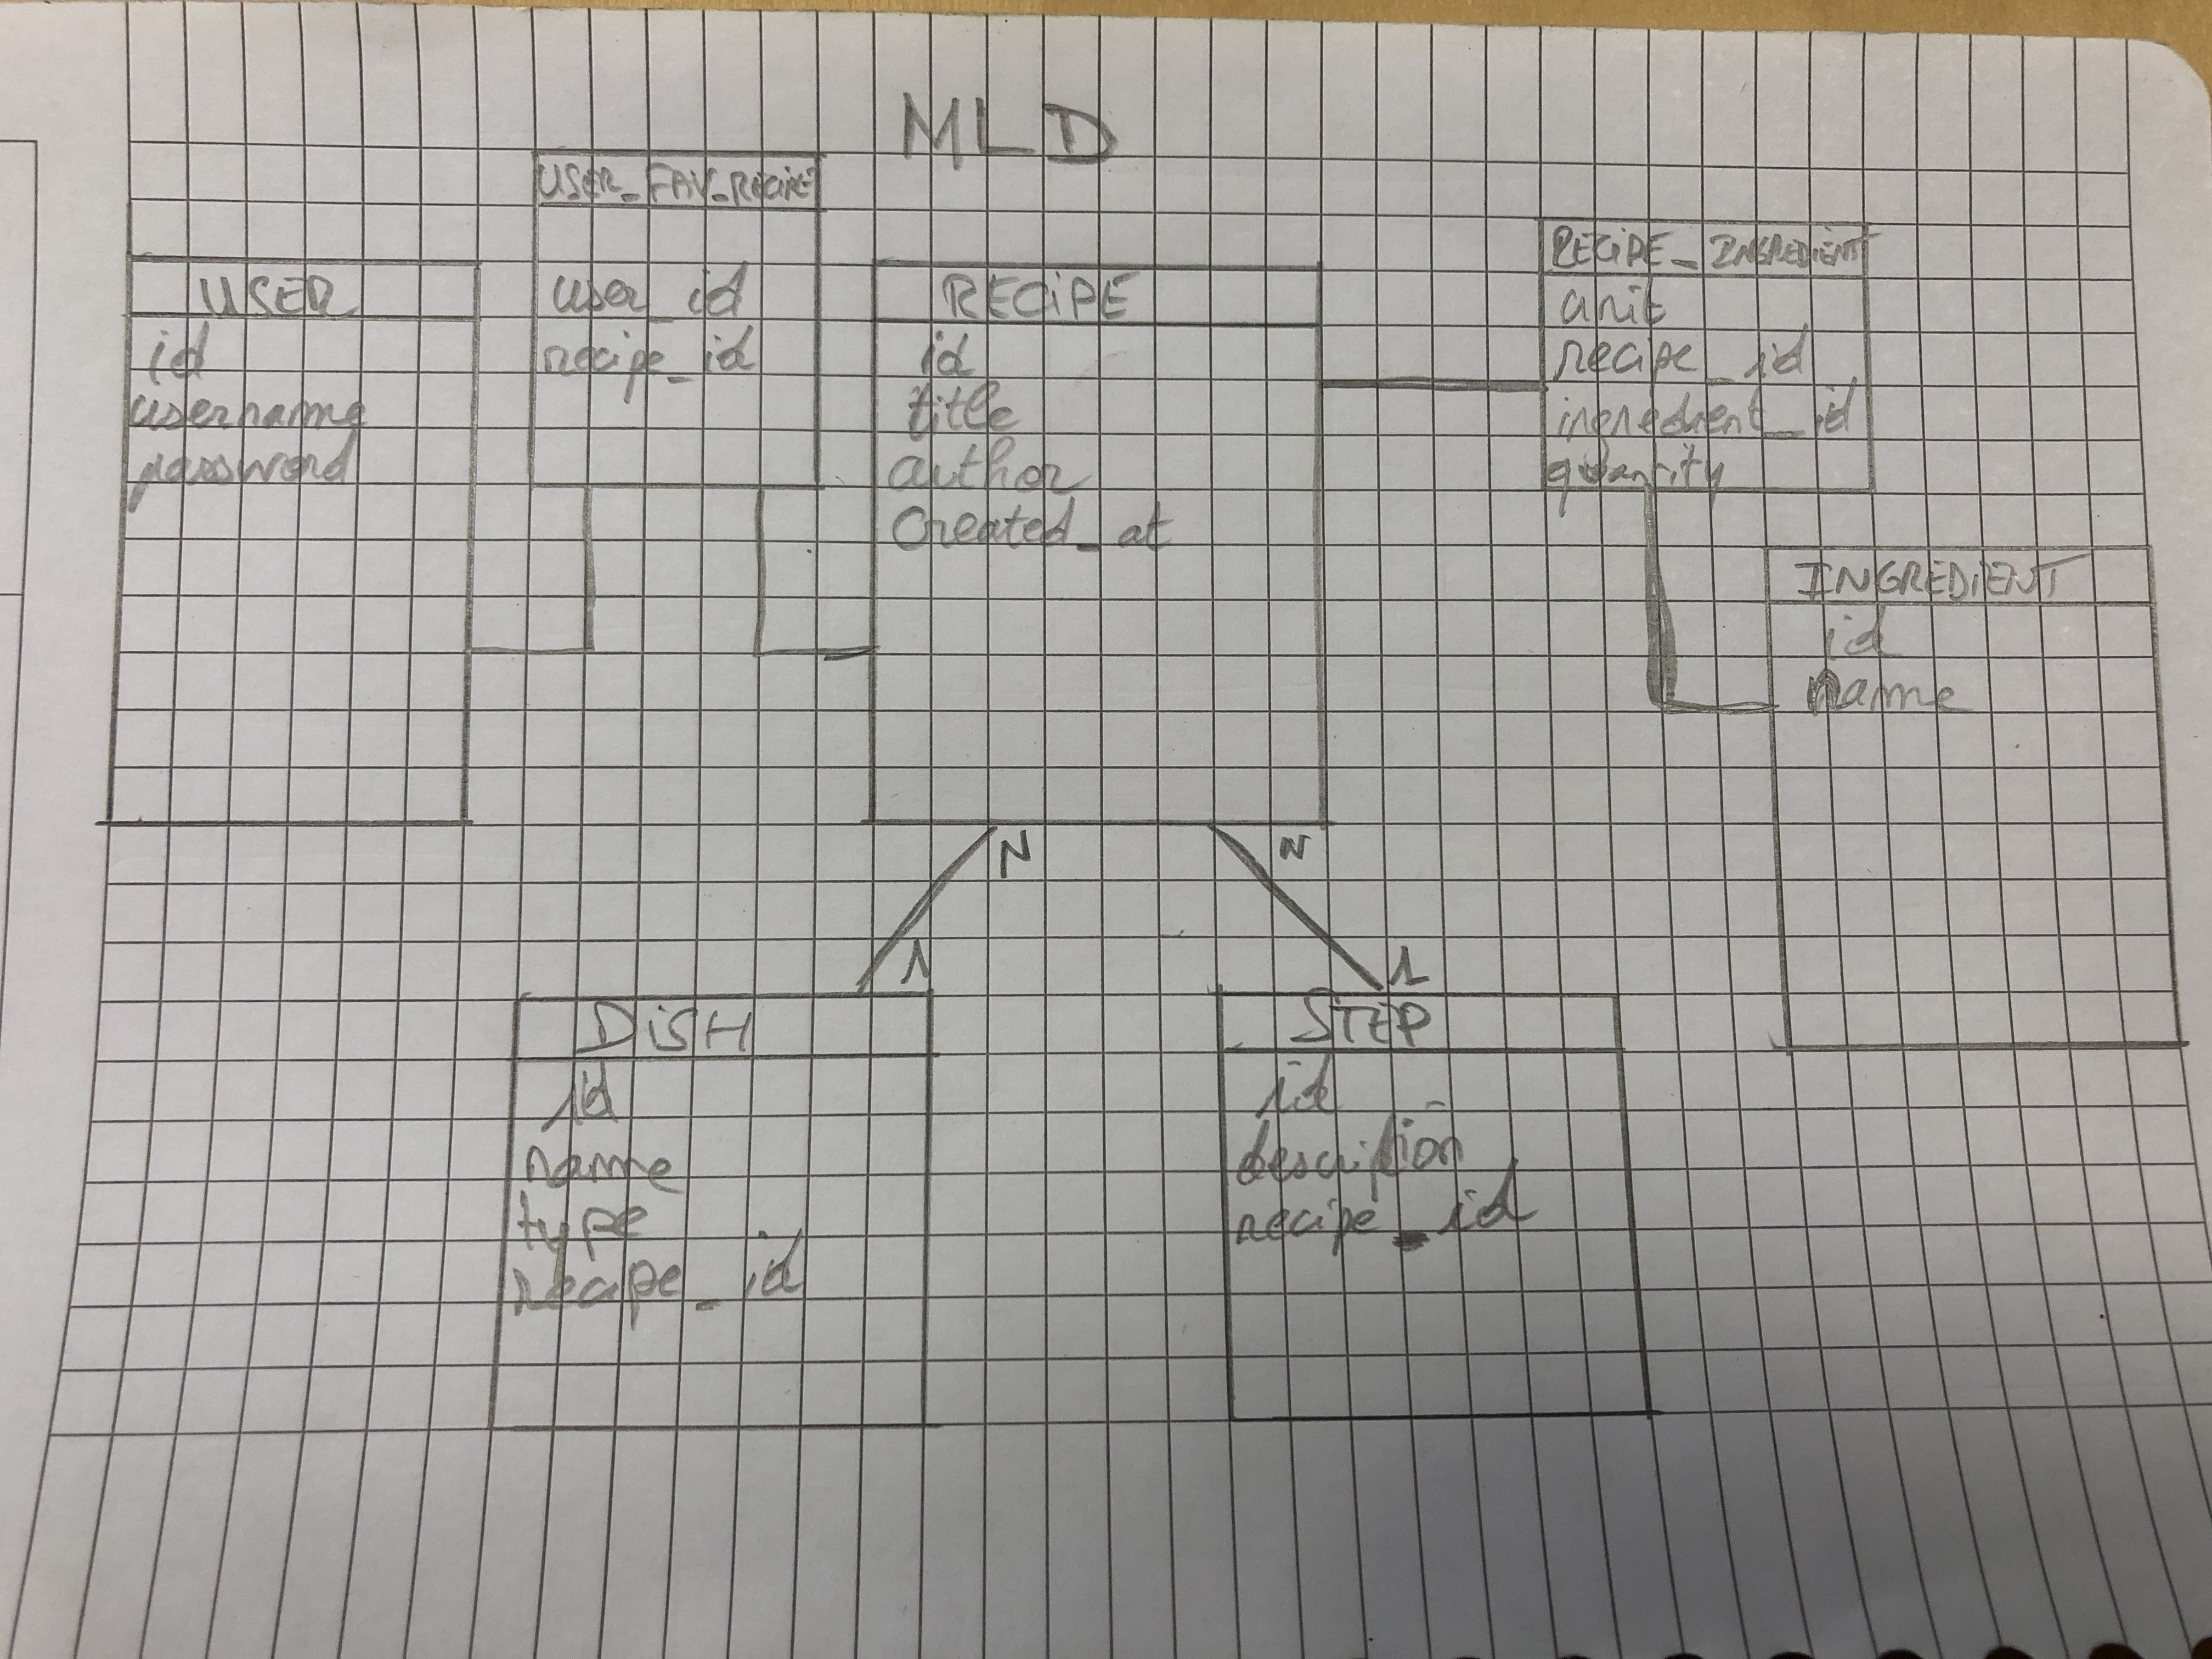 MLD
USER
id
username
password
USER_FAV_RECIPE
user_id
recipe_id
RECIPE
id
title
author
Created_at
RECIPE_INGREDIENT
unit
recipe_id
ingredient_id
quantity
INGREDIENT
id
name
N
N
1
1
DISH
id
name
type
recipe_id
STEP
id
description
recipe_id